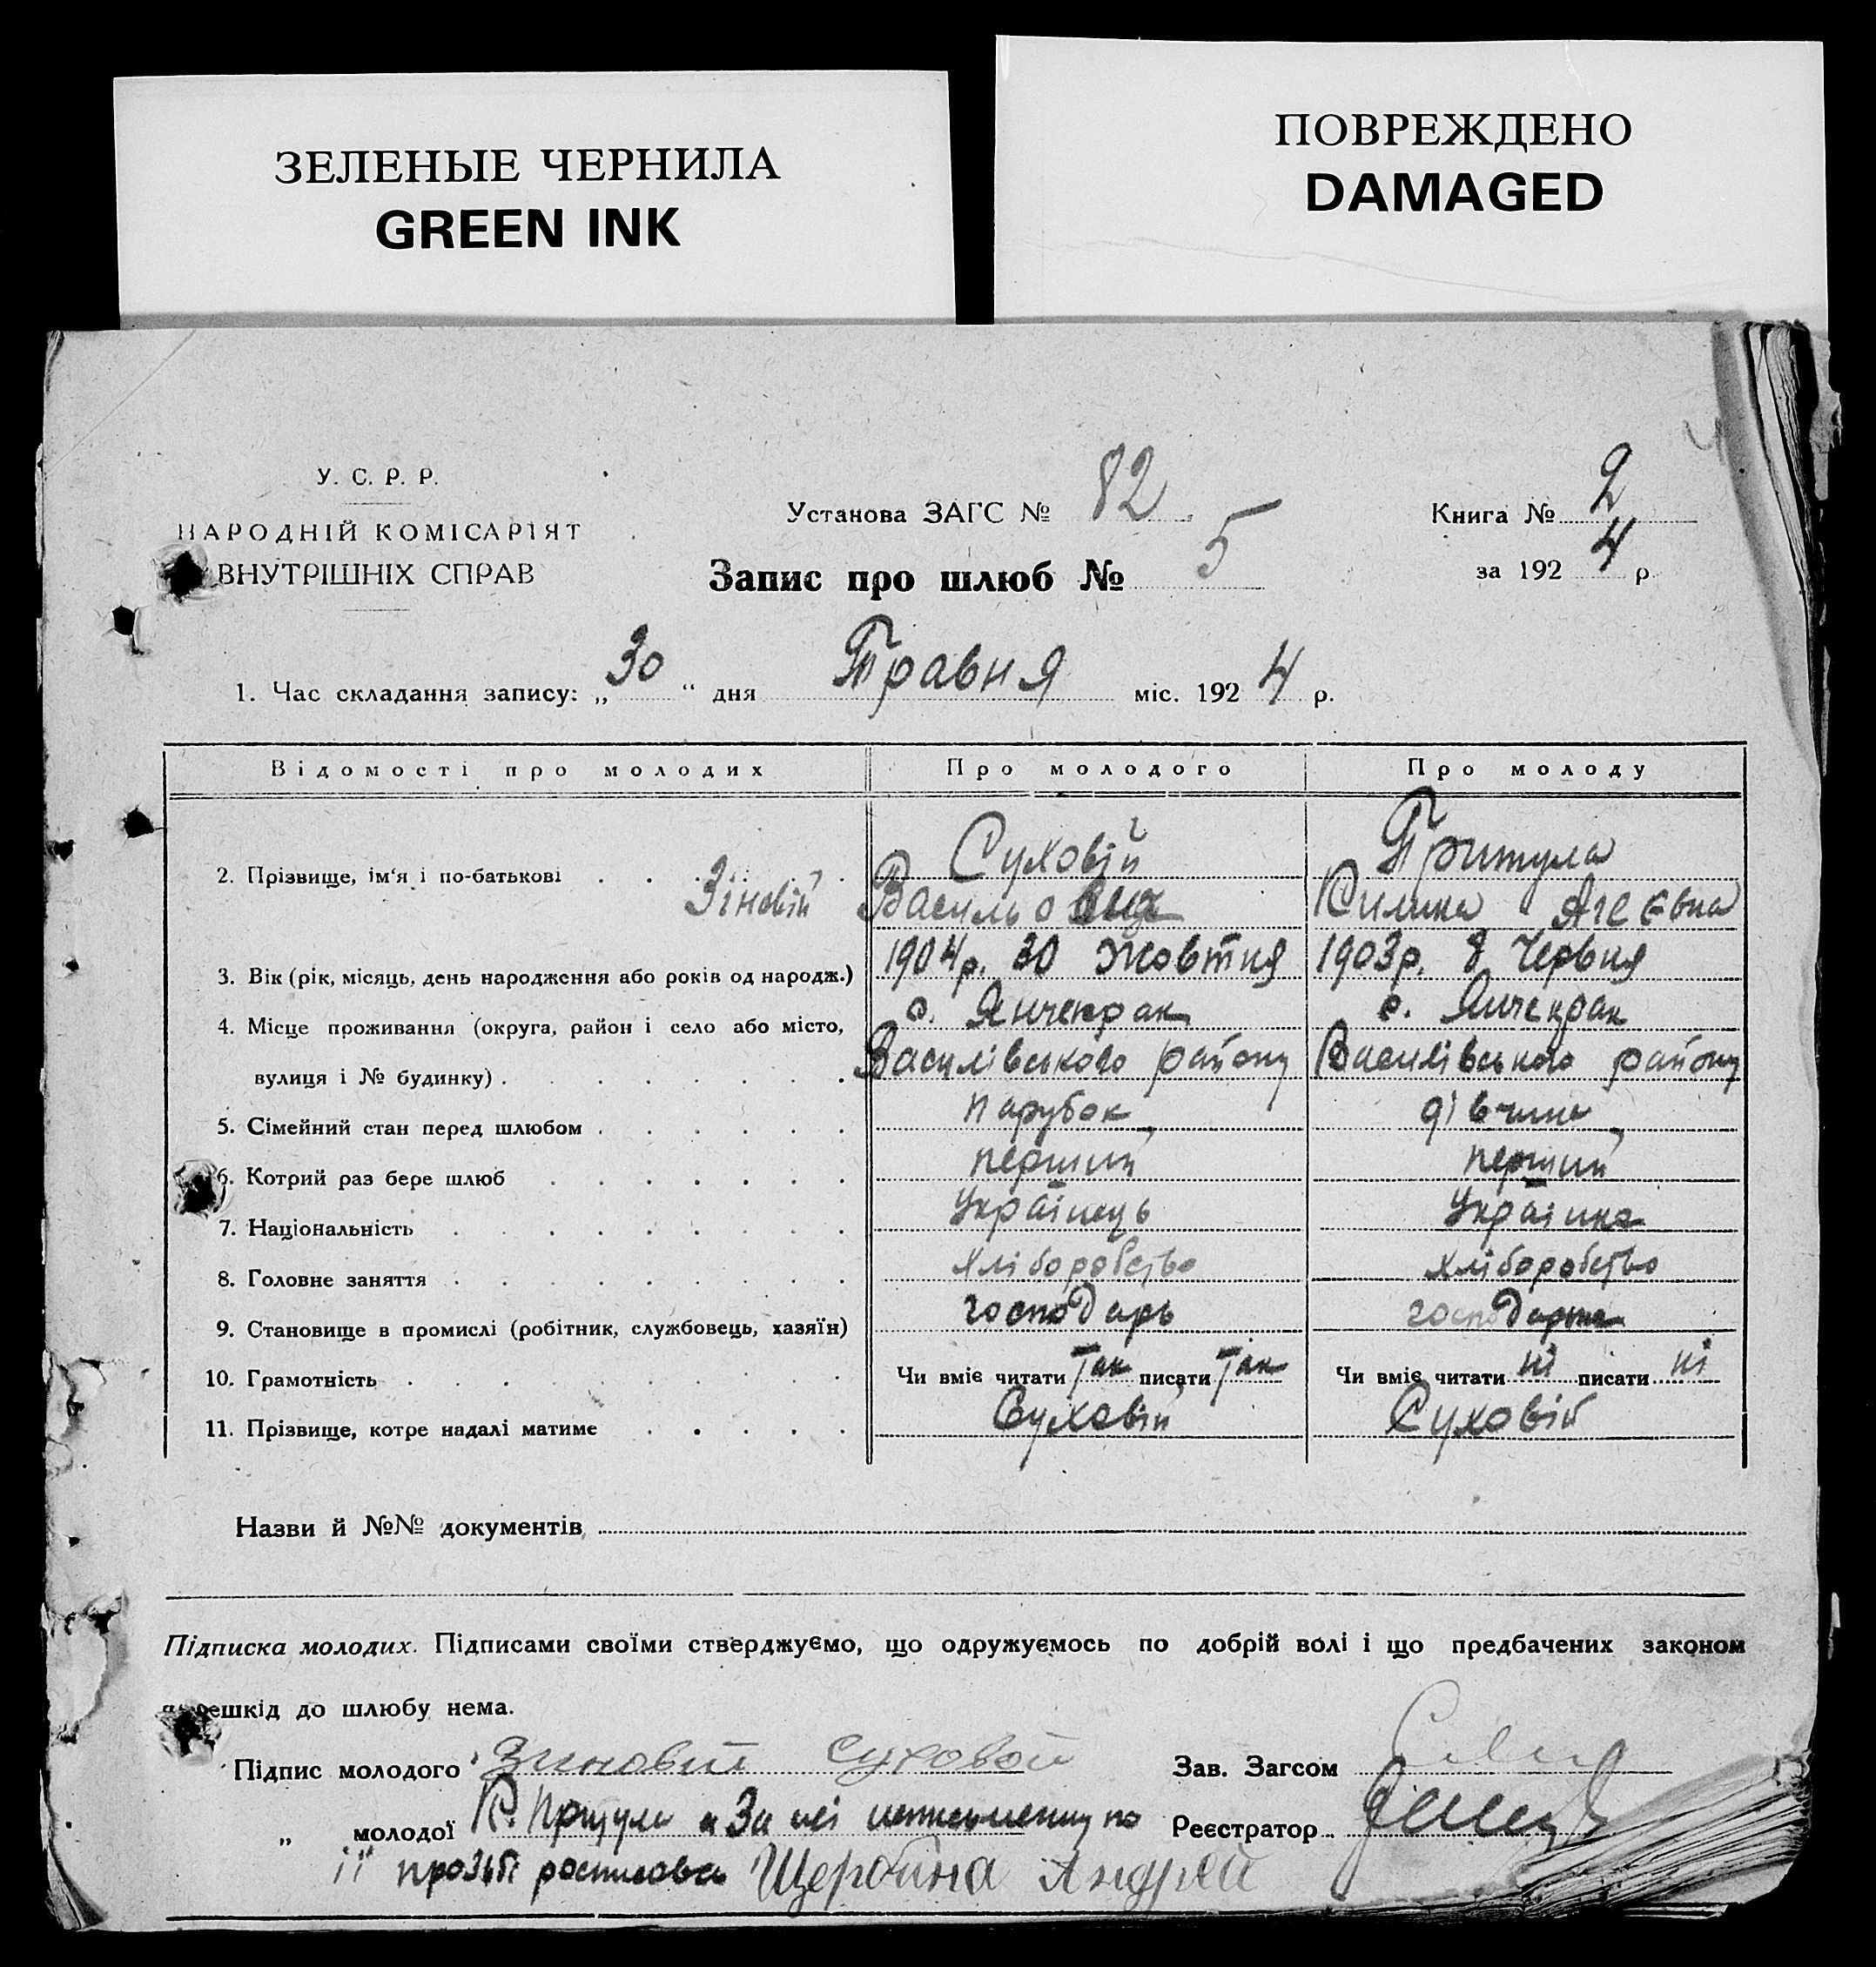 ЗЕЛЕНЫЕ ЧЕРНИЛА
GREEN INK
ПОВРЕЖДЕНО
DAMAGED
У. С. Р. Р.
НАРОДНІЙ КОМІСАРІЯТ
ВНУТРІШНІХ СПРАВ
Установа ЗАГС № 82
Запис про шлюб № 5
Книга № 2
за 1924 р
1. Час складання запису: „30“ дня Травня міс. 1924 р.
Відомості про молодих Про молодого Про молоду
2. Прізвище, ім'я і по-батькові Суховій Притула
Зіновій Васильович Килина Агеєвна
3. Вік (рік, місяць, день народження або років од народж.) 1904р. 30 Жовтня 1903р. 8 Червня
4. Місце проживання (округа, район і село або місто, с. Янчекрак с. Янчекрак
вулиця і № будинку) Василівського району Василівського району
5. Сімейний стан перед шлюбом парубок дівчина
6. Котрий раз бере шлюб перший перший
7. Національність Українець Українка
8. Головне заняття хліборобство хліборобство
9. Становище в промислі (робітник, службовець, хазяїн) господарь господарка
10. Грамотність Чи вміє читати Так писати Так Чи вміє читати ні писати ні
11. Прізвище, котре надалі матиме Суховій Суховій
Назви й №№ документів
Підписка молодих. Підписами своїми стверджуємо, що одружуємось по добрій волі і що предбачених законом
перешкід до шлюбу нема.
Підпис молодого Зиновій Суховой Зав. Загсом
„ молодої К. Притула За неї неписьменну по Реєстратор
її прозьбі росписався Щербина Андрей